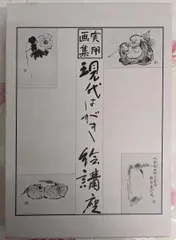 実用画集
現代はがき絵講座